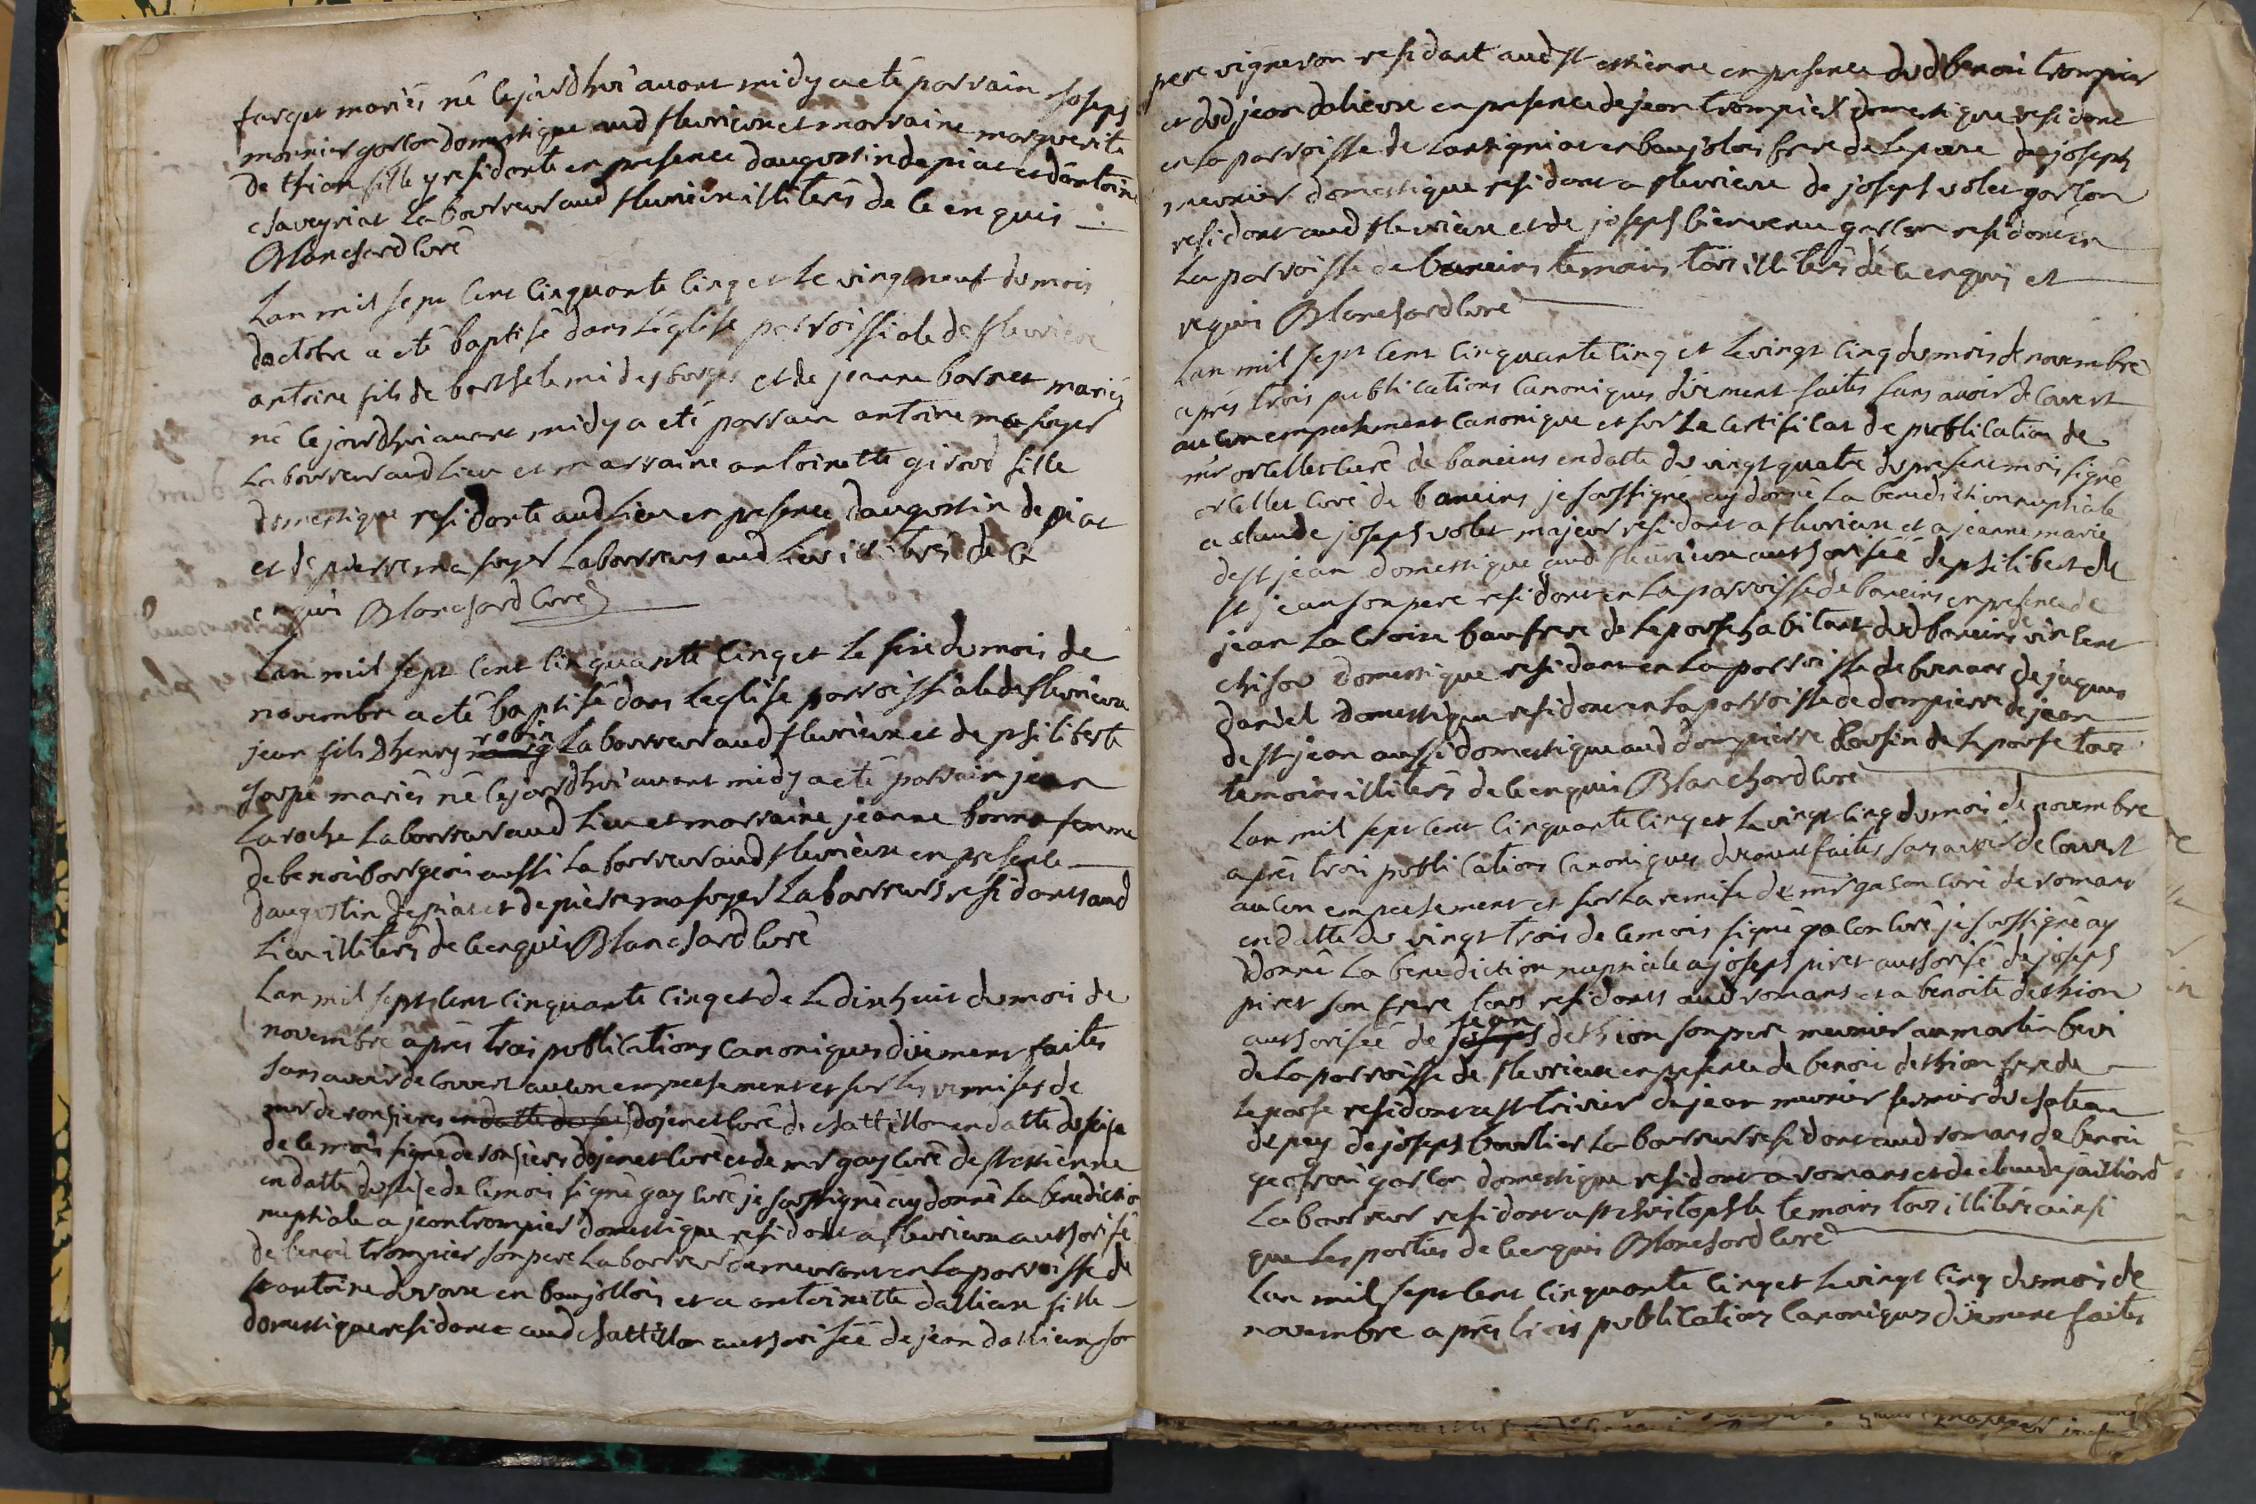 farget mariés né cejourdhui avant midy a eté parrain joseph
monnier garcon domestique aud fleurieux et marraine marguerite
de thion fille y residante en presence daugustin depiat et dantoine
chaveyriat laboureur aud fleurieux illiterés de ce enquis
Blanchard curé
Lan mil sept cent cinquante cinq et le vingt neuf du mois
doctobre a eté baptisé dans léglise parroissiale de fleurieux
antoine fils de barthelemi desforges et de jeanne bornet mariés
né cejourdhui avant midy a eté parrain antoine masoyer
laboureur aud lieu et marraine antoinette giroud fille
domestique residante aud lieu en presence daugustin depiat
et de pierre masoyer laboureurs aud lieu illiterés de ce
enquis Blanchard curé
Lan mil sept cent cinquante cinq et le six du mois de
novembre a eté baptisé dans leglise parroissiale de fleurieux
jean fils dhenry robin laboureur aud fleurieux et de philiberte
mariés né cejourdhui avant midy a eté parrain jean
laroche laboureur aud lieu et marraine jeanne bonne femme
de benoi bourgeois aussi laboureur aud fleurieux en presence
daugustin depiat et de pierre masoyer laboureurs residants aud
lieu illiterés de ce enquis Blanchard curé
Lan mil sept cent cinquante cinq et de le dixhuit du mois de
novembre aprés trois publications canoniques düement faites
sans avoir decouvert aucun empechement et sur les remises de
mr de ronsieres en datte du sei dojen et curé de chattillon en datte du seize
de ce mois signé de ronsiers dojen et curé et de mr gay curé de st estienne
en datte du seize de ce mois signé gay curé je soussigné ay donné la benediction
nuptiale a jean trompier domestique residant a fleurieux authorisé
de benoi trompier son pere laboureur demeurant en la parroisse de
st antoine en baujollois et a antoinette dallieux fille
domestique residante aud chattillon authorisée de jean dallieux son
pere vigneron residant aud st estienne en presence dud benoi trompier
et dud jean dalieure en presence de jean trompier domestique residant
en la parroisse de lantigniat en baujolois frere de lepoux de joseph
meunier domestique residant a fleurieux de joseph volet garcon
residant aud fleurieux et de joseph bienvenu garcon residant en
la parroisse de baneins temoins tous illiterés de ce enquis et
requis Blanchard curé
Lan mil sept cent cinquante cinq et le vingt cinq du mois de novembre
aprés trois publications canoniques düement faites sans avoir decouvert
aucun empechement canonique et sur le certificat de publication de
mr ortellet curé de baneins en datte du vingt quatre du present mois signé
ortellet curé de baneins je soussigné ay donné la benediction nuptiale
a claude joseph volet majeur residant a fleurieux et a jeanne marie
de st jean domestique aud fleurieux authorisée de philibert de
st jean son pere residant en la parroisse de baneins en presence de
jean la croix baufrere de lepouse habitant dud baneins de vincent
domestique residant en la parroisse de de jaques
daniel domestique residant en la parroisse de dompierre de jean
de st jean aussi domestique aud dompierre cousin de lepouse tous
temoins illiterés de ce enquis Blanchard curé
Lan mil sept cent cinquante cinq et le vingt cinq du mois de novembre
aprés trois publications canoniques düement faites sans avoir decouvert
aucun empechement et sur la remise de mr gacon curé de romans
en datte du vingt trois de ce mois signé gacon curé je soussigné ay
donné la benediction nuptiale a joseph piret authorisé de joseph
piret son frere tous residants aud romans et a benoite dethion
authorisée de joseph jean dethion son pere meunier au
de la parroisse de fleurieux en presence de benoi dethion frere de
lepouse residant a st trivier de jean meunier fermier du chateau
de joseph laboureur residant aud romans de benoi
geofroi garcon domestique residant a romans et de claude jailliard
laboureur residant a st christophle temoins tous illiterés ainsi
que les parties de ce enquis Blanchard curé
Lan mil sept cent cinquante cinq et le vingt cinq du mois de
novembre aprés trois publications canoniques düement faites